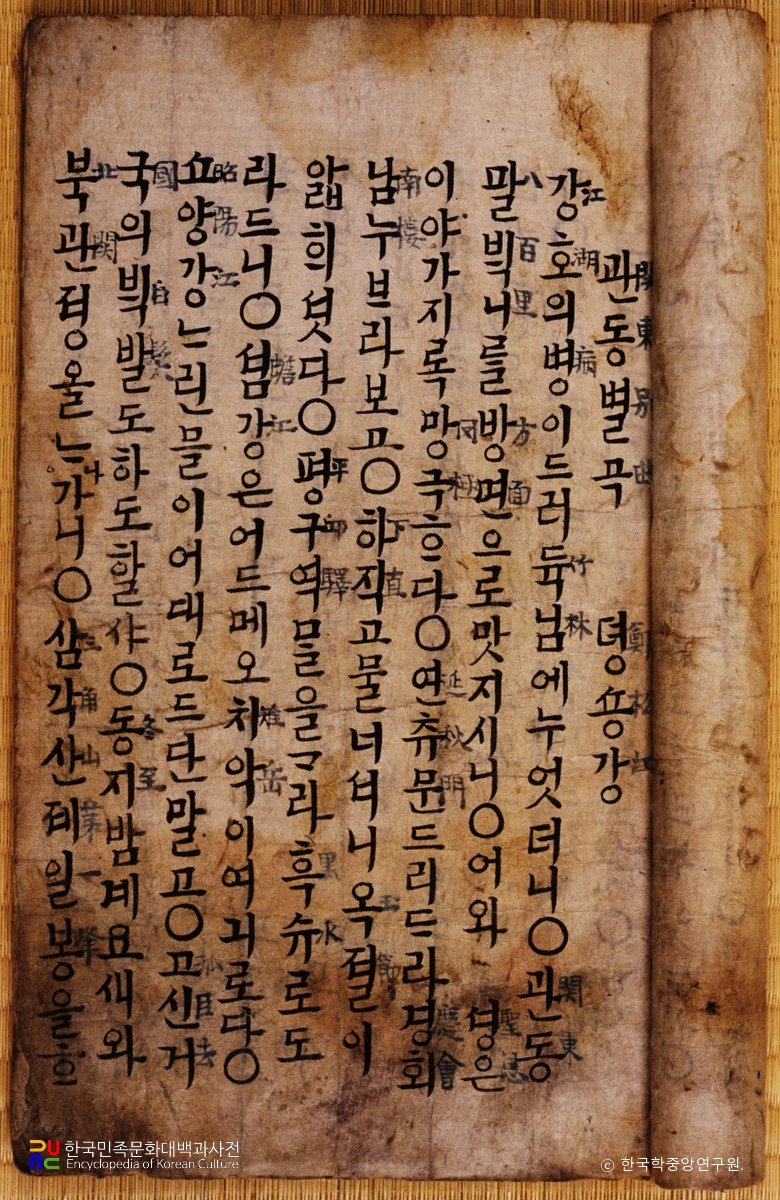 관동별곡 뎡숑강
關東別曲 鄭松江
강호의병이드러듁님에누엇더니○관동
江湖 病 竹林 關東
팔ᄇᆡᆨ니를방면으로맛지시니○어와 셩은
八百里 方面 聖恩
이야가지록망극ᄒᆞ다○연츄문드리ᄃᆞ라경회
罔極 延秋門 慶會
남누ᄇᆞ라보고○하직고물너셔니옥졀이
南樓 下直 玉節
앏희셧다○평구역ᄆᆞᆯ을ᄀᆞ라흑슈로도
平邱驛 黑水
라드니○셤강은어드메오치악이여긔로다○
蟾江 雉岳
쇼양강ᄂᆞ린믈이어대로드단말고○고신거
昭陽江 孤臣去
국의ᄇᆡᆨ발도하도할샤○동지밤계요새와
國 白髮 冬至
북관뎡올ᄂᆞ가니○삼각산뎨일봉을ᄒᆞ
北關 나 三角山 第一峯
한국민족문화대백과사전
Encyclopedia of Korean Culture
ⓒ 한국학중앙연구원